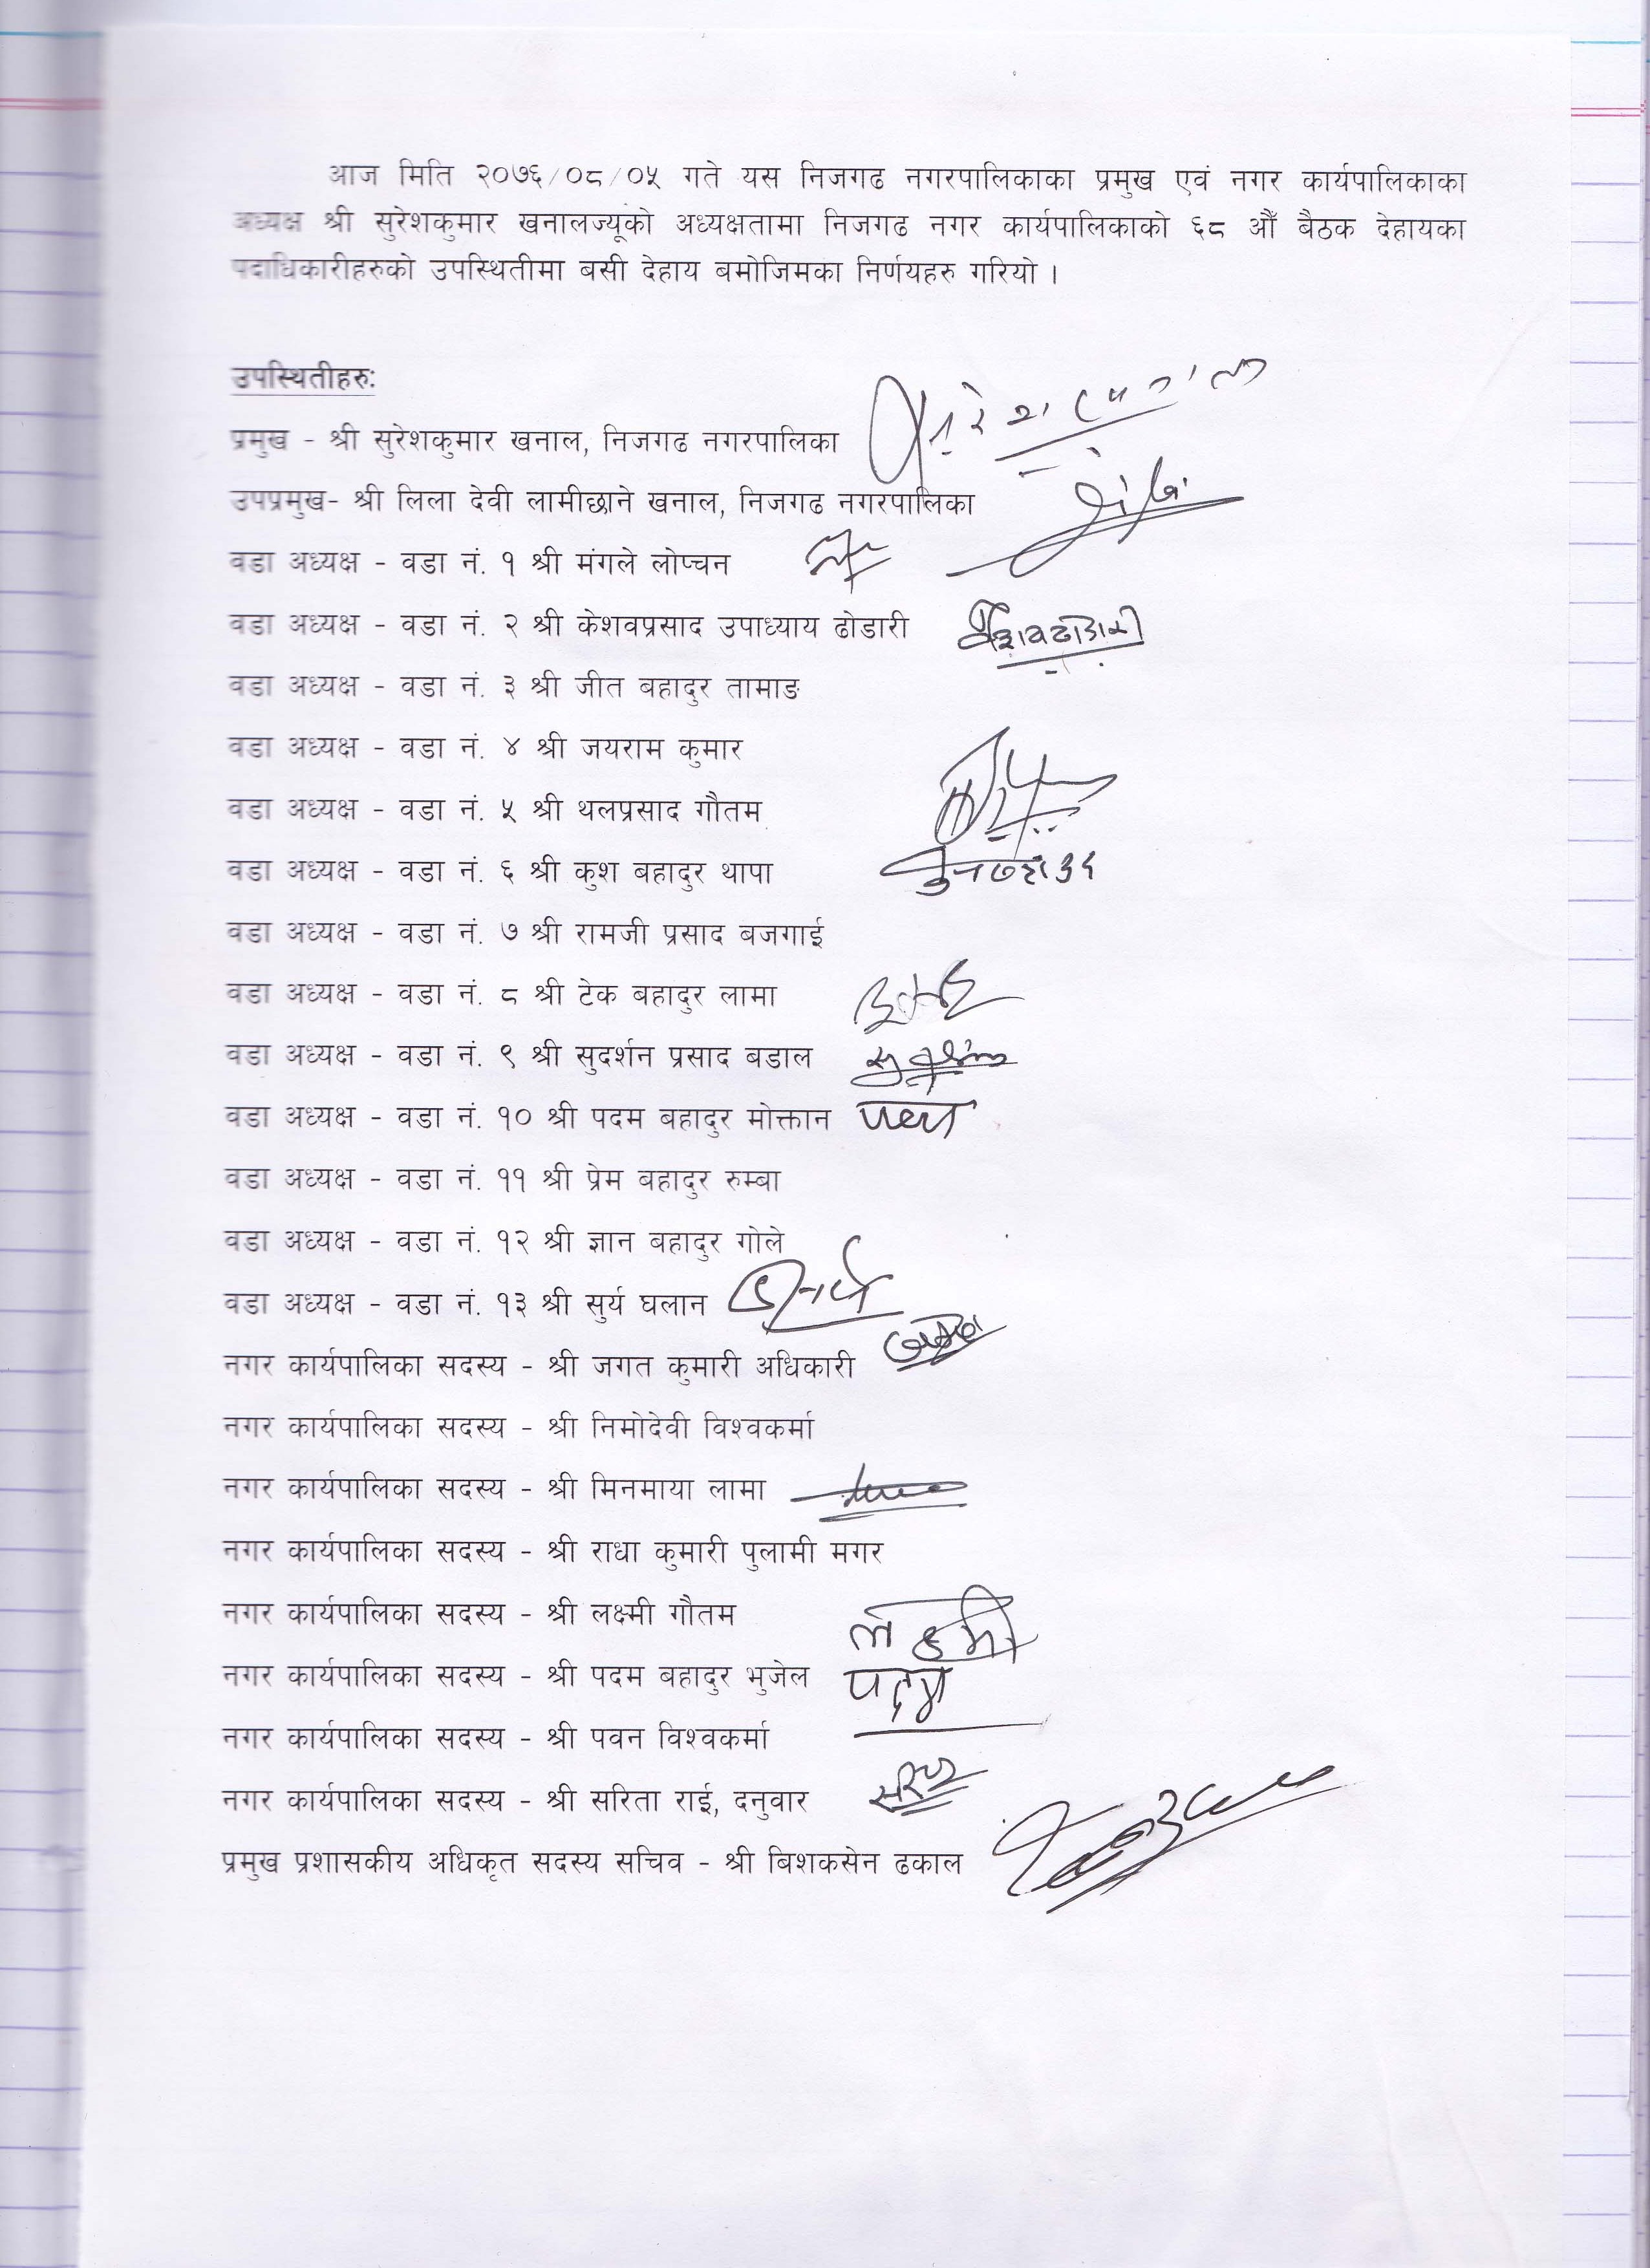 आज मिति २०७६/०८/०५ गते यस निजगढ नगरपालिकाका प्रमुख एवं नगर कार्यपालिकाका
अध्यक्ष श्री सुरेशकुमार खनालज्यूको अध्यक्षतामा निजगढ नगर कार्यपालिकाको ६८ औँ बैठक देहायका
पदाधिकारीहरुको उपस्थितीमा बसी देहाय बमोजिमका निर्णयहरु गरियो ।
उपस्थितीहरुः
प्रमुख - श्री सुरेशकुमार खनाल, निजगढ नगरपालिका
उपप्रमुख- श्री लिला देवी लामीछाने खनाल, निजगढ नगरपालिका
वडा अध्यक्ष - वडा नं. १ श्री मंगले लोप्चन
वडा अध्यक्ष - वडा नं. २ श्री केशवप्रसाद उपाध्याय ढोडारी
वडा अध्यक्ष - वडा नं. ३ श्री जीत बहादुर तामाङ
वडा अध्यक्ष - वडा नं. ४ श्री जयराम कुमार
वडा अध्यक्ष - वडा नं. ५ श्री थलप्रसाद गौतम
वडा अध्यक्ष - वडा नं. ६ श्री कुश बहादुर थापा
वडा अध्यक्ष - वडा नं. ७ श्री रामजी प्रसाद बजगाई
वडा अध्यक्ष - वडा नं. ८ श्री टेक बहादुर लामा
वडा अध्यक्ष - वडा नं. ९ श्री सुदर्शन प्रसाद बडाल
वडा अध्यक्ष - वडा नं. १० श्री पदम बहादुर मोक्तान
वडा अध्यक्ष - वडा नं. ११ श्री प्रेम बहादुर रुम्बा
वडा अध्यक्ष - वडा नं. १२ श्री ज्ञान बहादुर गोले
वडा अध्यक्ष - वडा नं. १३ श्री सुर्य घलान
नगर कार्यपालिका सदस्य - श्री जगत कुमारी अधिकारी
नगर कार्यपालिका सदस्य - श्री निमोदेवी विश्वकर्मा
नगर कार्यपालिका सदस्य - श्री मिनमाया लामा
नगर कार्यपालिका सदस्य - श्री राधा कुमारी पुलामी मगर
नगर कार्यपालिका सदस्य - श्री लक्ष्मी गौतम
नगर कार्यपालिका सदस्य - श्री पदम बहादुर भुजेल पदम
नगर कार्यपालिका सदस्य - श्री पवन विश्वकर्मा
नगर कार्यपालिका सदस्य - श्री सरिता राई, दनुवार
प्रमुख प्रशासकीय अधिकृत सदस्य सचिव - श्री बिशकसेन ढकाल